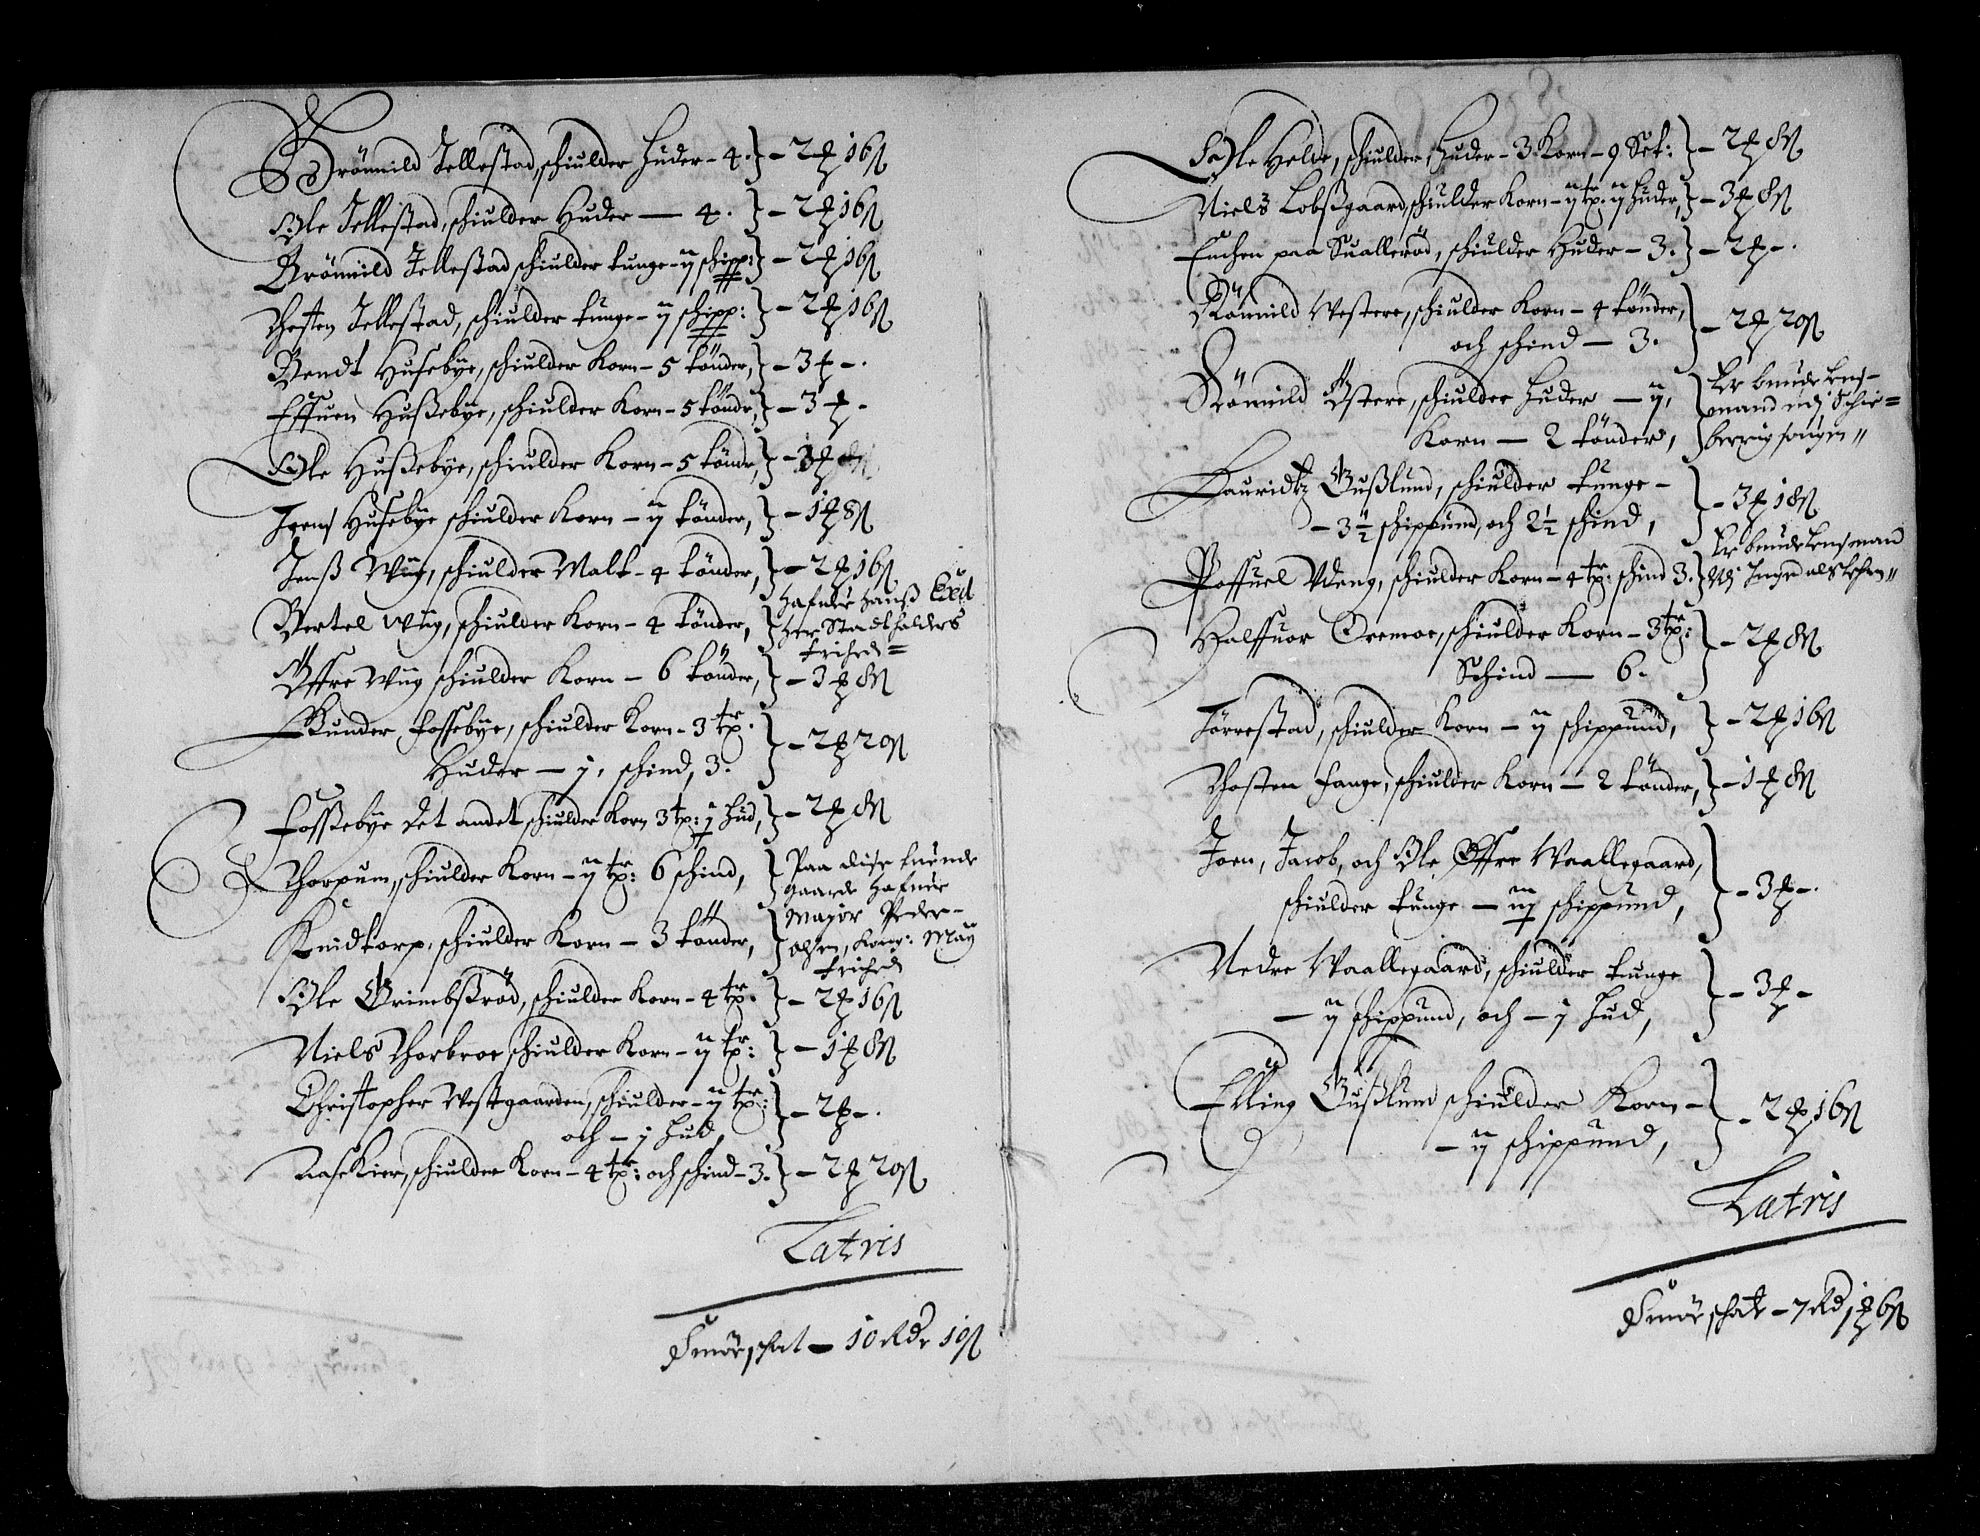 Brönnild Jellestad, schiulder Huder - 4. - 2 16ß
Ole Jellestad, schiulder Huder — 4. - 2 16ß
Brönnild Jellestad schiulder tunge - ij schipp: - 2 16ß
Thosten Jellestad, schiulder tunge - ij schipp: - 2 16ß
Bendt Husebÿe, schiulder Korn - 5 tönder, - 3 - .
Effuen Hußebÿe, schiulder Korn - 5 tönder, - 3 -
Ole Hußebÿe, schiulder Korn - 5 tönder, - 3
Jrens Husebÿe schiulder Korn - ij tönder, - 1 8ß
Jenß Wiig, schiulder Malt - 4 tönder, - 2 16ß
Bertel Wiig, schiulder Korn - 4 tönder, hafuer hanß Excel
her Stadtholders
frihed =
Offre Wiig schiulder Korn - 6 tönder, - 3 8ß
Gunder fossebÿe, schiulder Korn - 3 tr.
Huder — j, schind, 3. - 2 20ß
Foßebÿe det andet schiulder Korn 3 tr: j hud, - 2 8ß
Thorpum, schiulder Korn - ij tr: 6 schind, Paa disse tuende
gaarde hafuer
Knidtorp, schiulder Korn - 3 tönder, Major Peder -
Olsen, Kong: Maÿ
frihed
Ole Grimbsröd, schiulder Korn - 4 tr. - 2 16ß
Niels Thorbroe schiulder Korn - ij tr: - 1 8ß
Christopher Westgaarden, schiulder - ij tr:
och - j hud, - 2 - .
Aase Kier, schiulder Korn - 4 tr: och schind - 3. - 2 20ß
Latris
Smör schat - 10 Rdr 19ß
Ole Helde, schiulder Huder - 3 Korn - 9 Set: - 2 8ß
Niels Lobßgaard, schiulder Korn - ij tr: ij huder, - 3 8ß
Enchen paa Suallerød, schiulder Huder - 3. - 2 - .
Römnild Westere, schiulder Korn - 4 tönder,
och schind — 3. - 2 20ß
Römnild Östere, schiulder huder — ij,
Korn — 2 tönder, Er bunde Lens-
mand udj Schie =
berrig songen "
Lauridtz Gußlund, schiulder tunge -
- 3½ schippund, och 2½ schind, - 3 18ß
Poffuel Vdeng, schiulder Korn - 4 tr: schind 3. Er bunde Lensmand
Halffuor Oremoe, schiulder Korn - 3 tr:
Schind — 6. - 2 8ß
Törrestad, schiulder Korn - ij schippund, - 2 16ß
Thosten Hange, schiulder Korn - 2 tönder, - 1 8ß
Joen, Jacob, och Ole Offre Waallegaard,
schiulder tunge — iij schippund, - 3 - .
Nedre Waallegaard, schiulder tunge
- ij schippund, och - j hud, - 3 -
Elling Gußlund schiulder Korn -
- ij schippund, - 2 16ß
Latris
Smör schat - 7 Rd 1 6ß